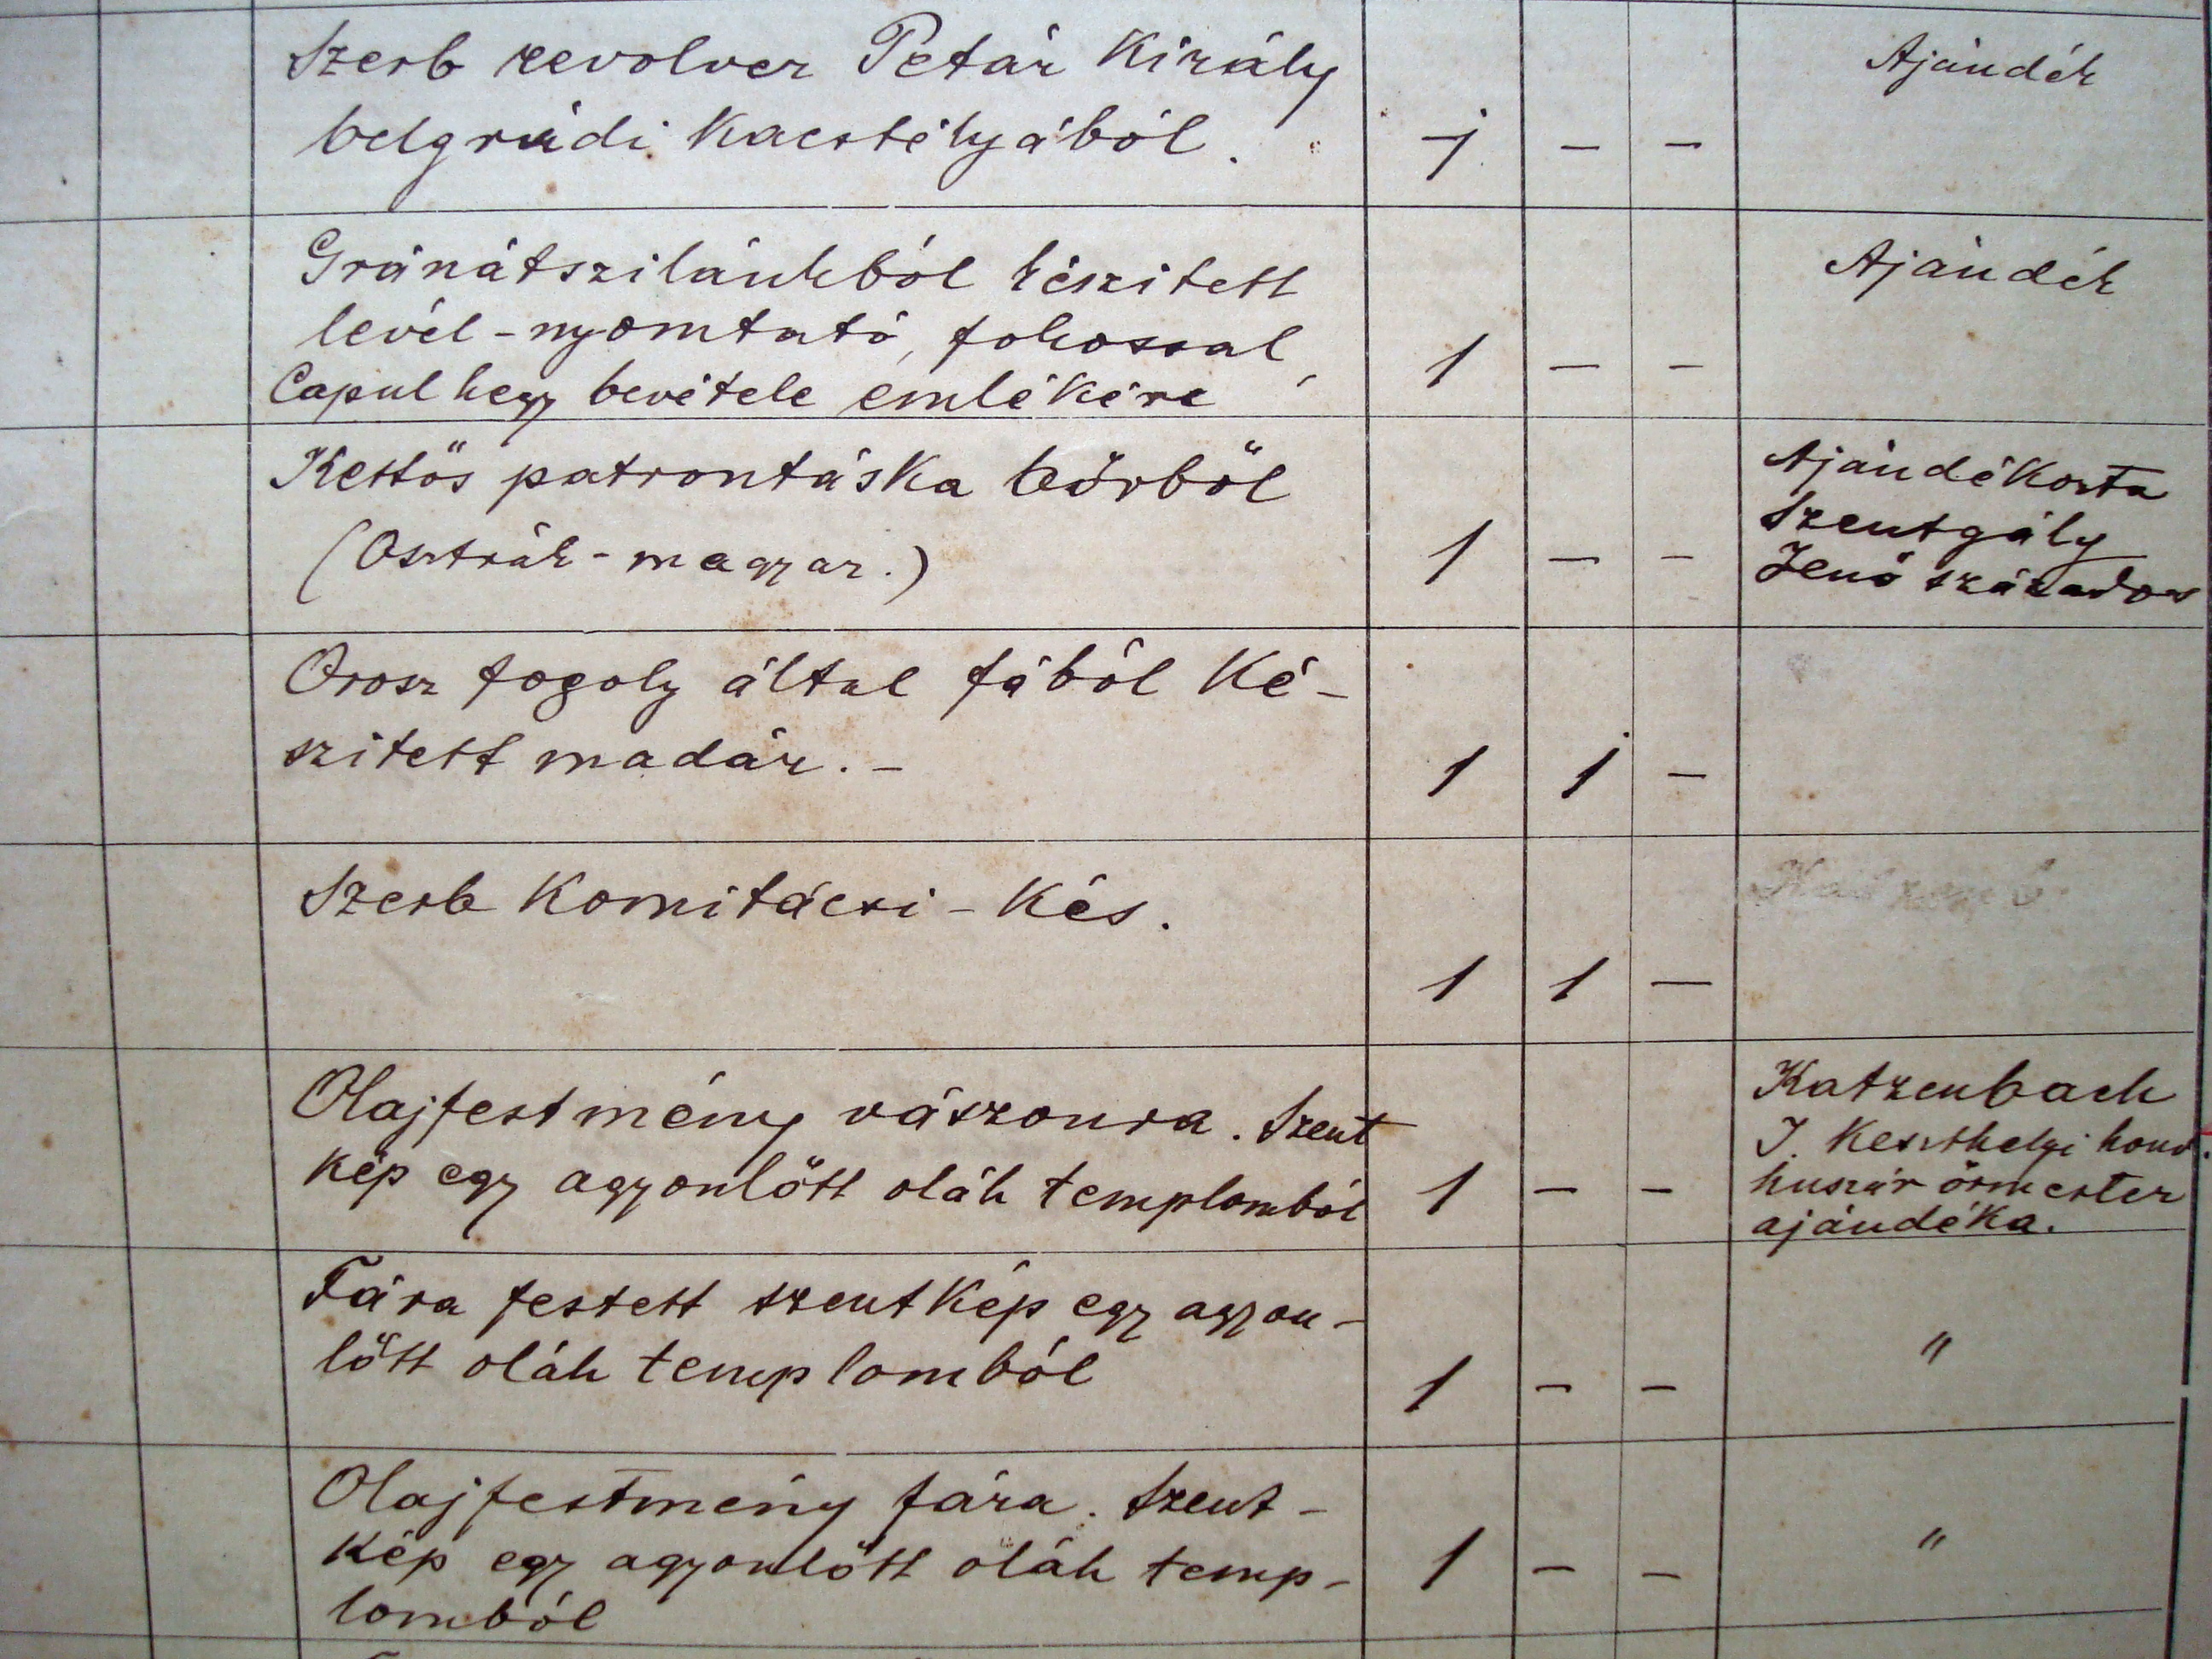 Szerb revolver Petár Király
Ajándék
belgrádi Kacstélyából.
1 – –
Gránátszilánkból készitett
Ajándék
levél-nyomtató, fokossal,
Capul hegy bevétele emlékére
1 – –
Kettős patrontáska bőrből
(Osztrák-magyar.)
1 – –
Ajándékozta
Szentgály
Jenő százados
Orosz fogoly által fából Ké-
szitett madár. –
1 1 –
Szerb Komitácsi-Kés.
1 1 –
Olajfestmény vászonra. Szent
Kép egy agyonlőtt oláh templomból
1 – –
Katzenbach
J. Keszthelyi honv.
huszár őrmester
ajándéka.
Fára festett szentkép egy agyon-
lőtt oláh templomból
1 – –
"
Olajfestmény fára. Szent-
Kép egy agyonlőtt oláh temp-
lomból
1 – –
"